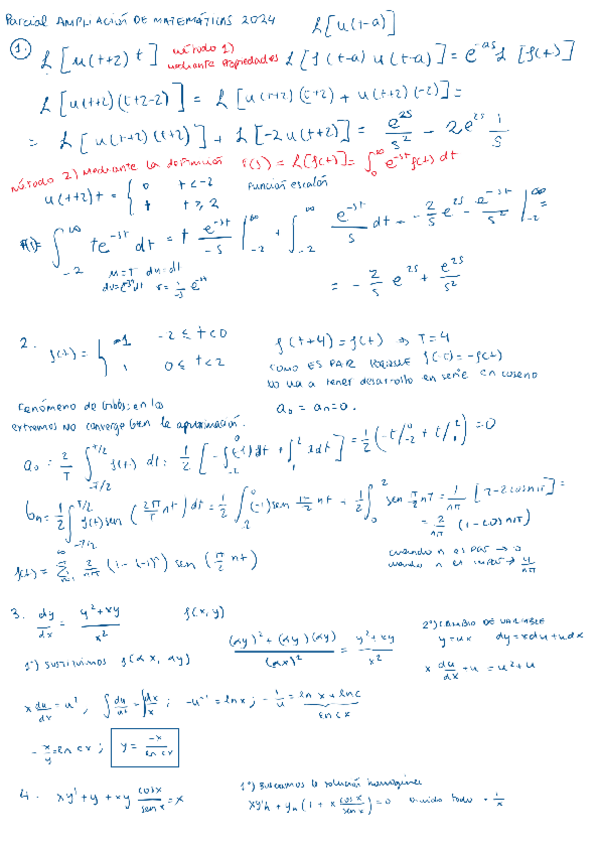 Parcial AMPLIACIÓN DE MATEMÁTICAS 2024 L[u(t-a)]
1. L[u(t+2) t] método 1) mediante propiedades L[f(t-a) u(t-a)] = e^-as L[f(t)]
L[u(t+2)(t+2-2)] = L[u(t+2)(t+2) + u(t+2)(-2)] =
= L[u(t+2)(t+2)] + L[-2u(t+2)] = e^2s/s² - 2e^2s 1/s
método 2) Mediante la definición F(s) = L[f(t)] = ∫_0^∞ e^-st f(t) dt
u(t+2)t = { 0 t<-2 Función escalón
t t≥2
F(s)= ∫_-2^∞ te^-st dt = t e^-st/-s |_-2^∞ + ∫_-2^∞ e^-st/s dt = -2/s e^2s - e^-st/s² |_-2^∞ =
u=t du=dt
dv=e^-st dt v=1/-s e^-st
= -2/s e^2s + e^2s/s²
2. f(t) = { -1 -2≤t<0 f(t+4) = f(t) ⇒ T=4
1; 0≤t<2 COMO ES PAR PORQUE f(-t) = -f(t)
NO VA A TENER desarrollo en serie en coseno
Fenómeno de Gibbs: en los a₀ = an = 0.
extremos no converge bien la aproximación.
a₀ = 2/T ∫_-T/2^T/2 f(t) dt = 1/2 [-∫_-2^0 (1) dt + ∫_1^2 1dt] = 1/2 (-t/_-2^0 + t/_1^2) = 0
bn = 1/2 ∫_-T/2^T/2 f(t) sen (2π/T nt) dt = 1/2 ∫_-2^0 (-1) sen π/2 nt + 1/2 ∫_0^2 sen π/2 nT = 1/nπ [2-2cosnπ] =
= 2/nπ (1-cos nπ)
cuando n es par → 0
cuando n es impar → 4/nπ
f(t) = Σ 2/nπ (1-(-1)^n) sen (π/2 nt)
3. dy/dx = y²+xy/x² f(x,y)
1º) sustituimos f(αx, αy) (αy)²+(αy)(αx)/(αx)² = y²+xy/x²
2º) CAMBIO DE VARIABLE
y=ux dy=xdu+udx
x du/dx + u = u²+u
x du/dx = u²; ∫du/u² = ∫dx/x; -u^-1 = lnx; -1/u = ln x + lnc
ln cx
-x/y = ln cx; y = -x/ln cx
4. xy'+y+xy cosx/senx = x
1º) Buscamos la solución homogénea
xy'h + yh (1 + x cosx/senx) = 0 Divido todo ÷ 1/x